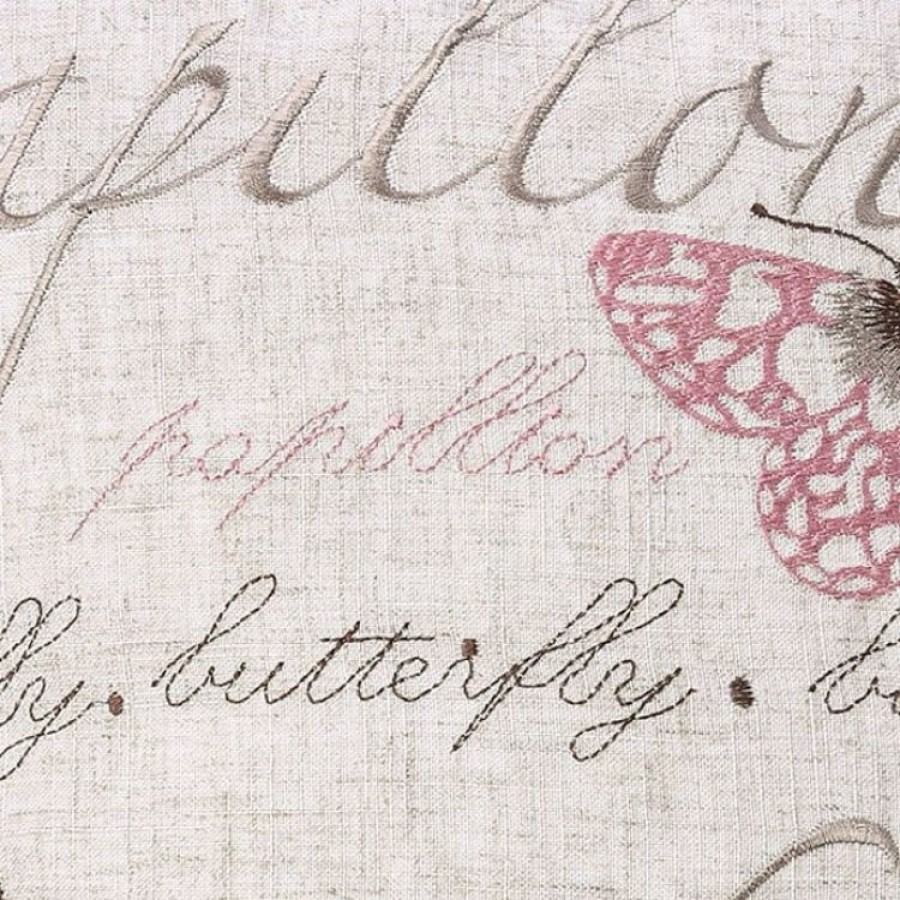 apillon
papillion
ly. butterfly. b